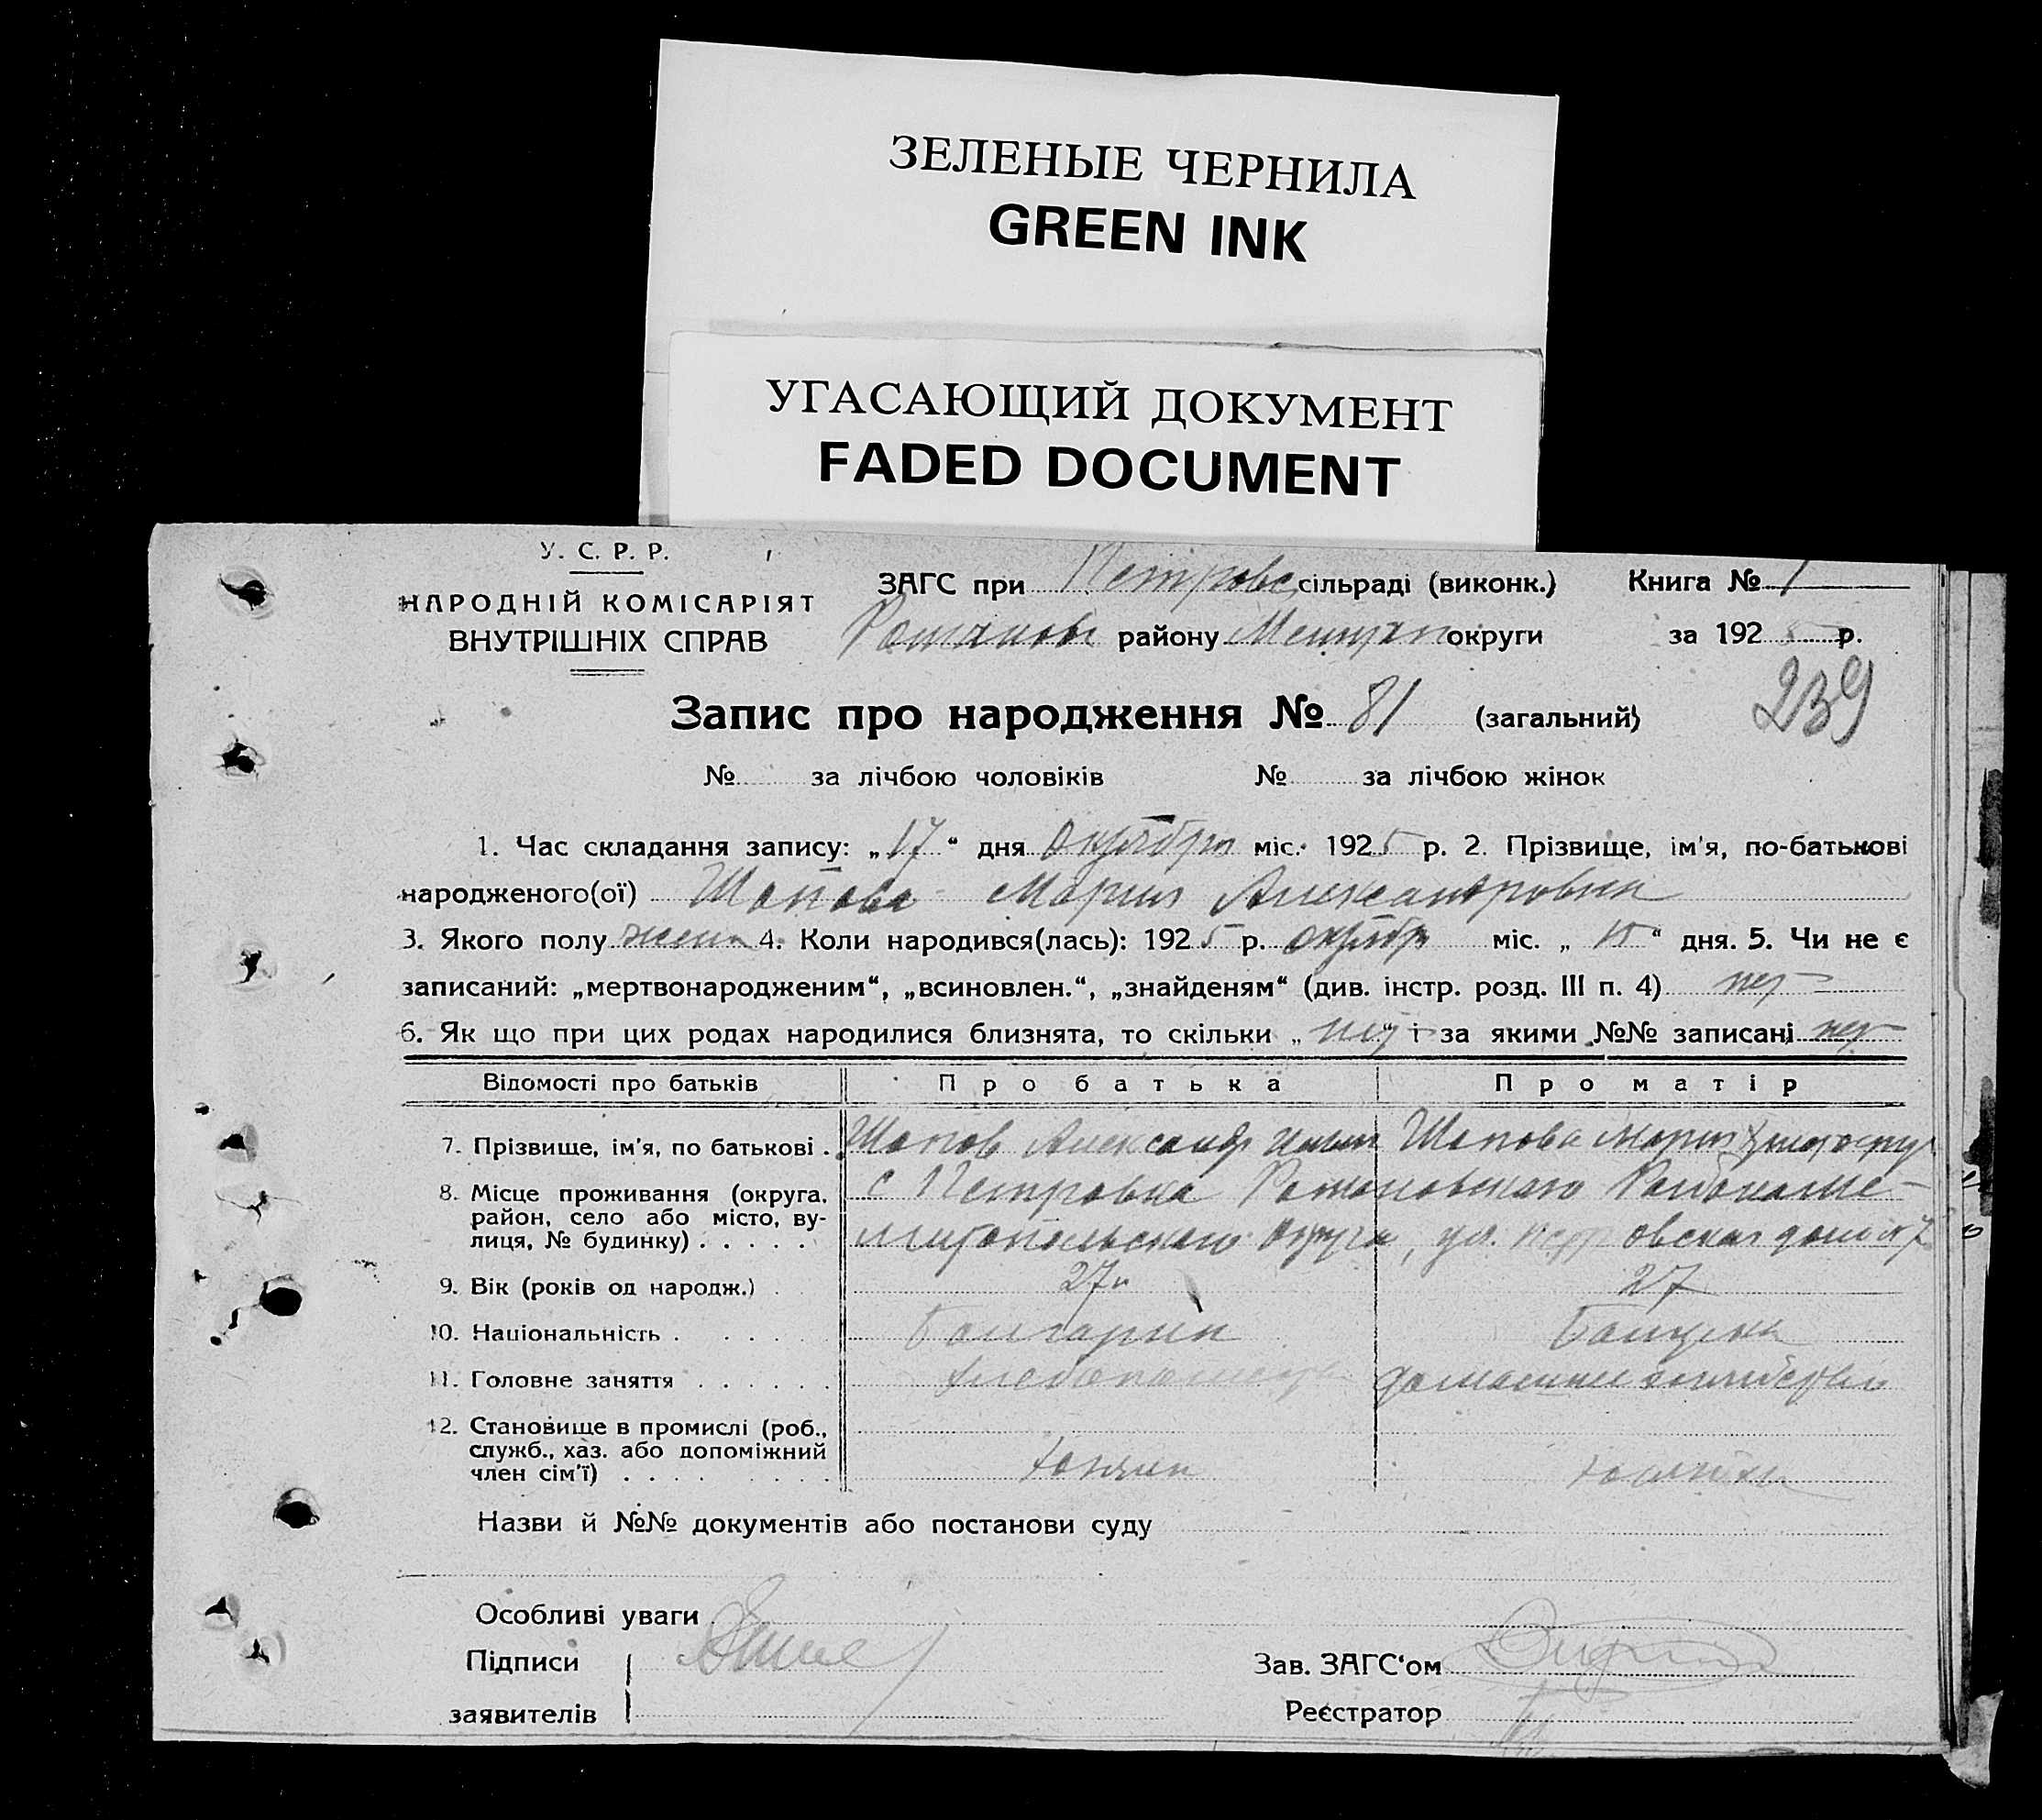 ЗЕЛЕНЫЕ ЧЕРНИЛА
GREEN INK
УГАСАЮЩИЙ ДОКУМЕНТ
FADED DOCUMENT
У. С. Р. Р.
НАРОДНІЙ КОМІСАРІЯТ
ВНУТРІШНІХ СПРАВ
ЗАГС при Петровс сільраді (виконк.) Книга № 1
району округи за 192 р.
Запис про народження № 81 (загальний)
239
№ за лічбою чоловіків № за лічбою жінок
1. Час складання запису: „17“ дня Октября міс. 1925 р. 2. Прізвище, ім'я, по-батькові
народженого(ої) Шопова Мария Александровна
3. Якого полу жен 4. Коли народився(лась): 1925 р. октября міс. „ “ дня. 5. Чи не є
записаний: „мертвонародженим“, „всиновлен.“, „знайденям“ (див. інстр. розд. III п. 4) нет
6. Як що при цих родах народилися близнята, то скільки „нет“ і за якими №№ записані нет
Відомості про батьків Про батька Про матір
7. Прізвище, ім'я, по батькові . Шопов Александр Шопова Мария
8. Місце проживання (округа, с Петровка Романовского
район, село або місто, ву-
лиця, № будинку) . . . . . литопольского округа, ул. Петровская дом № 7
9. Вік (років од народж.) . 27 27
10. Національність . . . . . Болгарин Болгарка
11. Головне заняття . . . . . . хлебопашец домашнее хозяйство
12. Становище в промислі (роб.,
служб., хаз. або допоміжний
член сім'ї) . . . . . . . . хозяин хозяйка
Назви й №№ документів або постанови суду
Особливі уваги
Підписи Зав. ЗАГС‘ом
заявителів Реєстратор